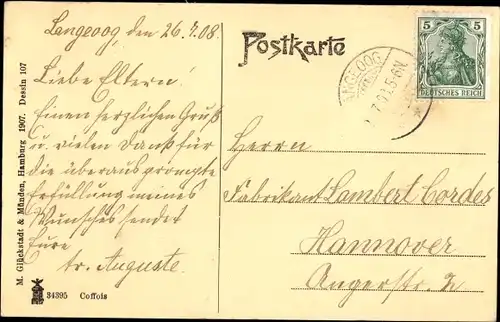 Langeoog, den 26.7.08.
Liebe Eltern!
Einen herzlichen Gruß
u. vielen Dank für
die überaus prompte
Erfüllung meines
Wunsches sendet
Eure
tr. Auguste.
Postkarte
LANGEOOG
5-6N.
5 5
DEUTSCHES REICH
Herrn
Fabrikant Lambert Cordes
Hannover
Angerstr. 2
M. Glückstadt & Münden, Hamburg 1907. Dessin 107
34395 Coffois